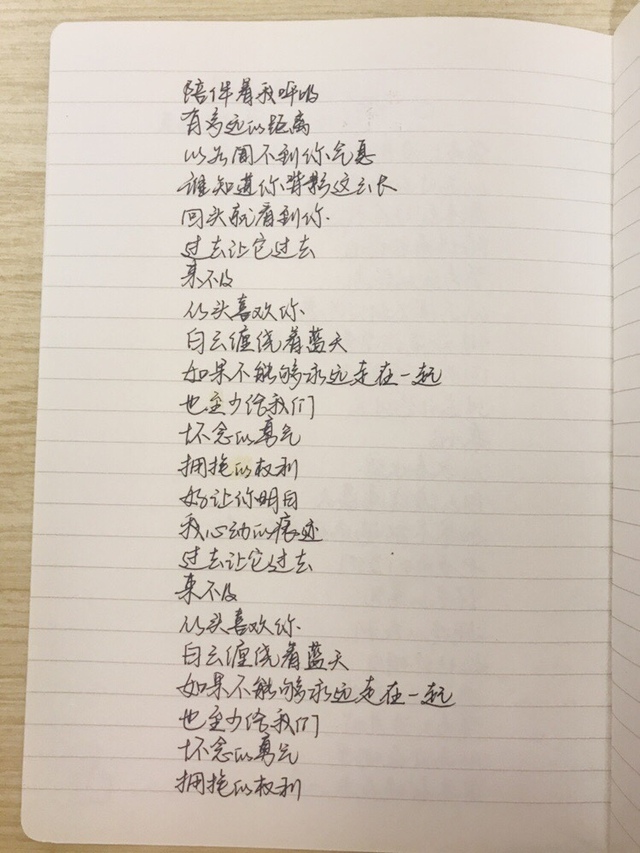 陪伴着我呼吸
有多远的距离
以为闻不到你气息
谁知道你背影这么长
回头就看到你
过去让它过去
来不及
从头喜欢你
白云缠绕着蓝天
如果不能够永远走在一起
也至少给我们
怀念的勇气
拥抱的权利
好让你明白
我心动的痕迹
过去让它过去
来不及
从头喜欢你
白云缠绕着蓝天
如果不能够永远走在一起
也至少给我们
怀念的勇气
拥抱的权利